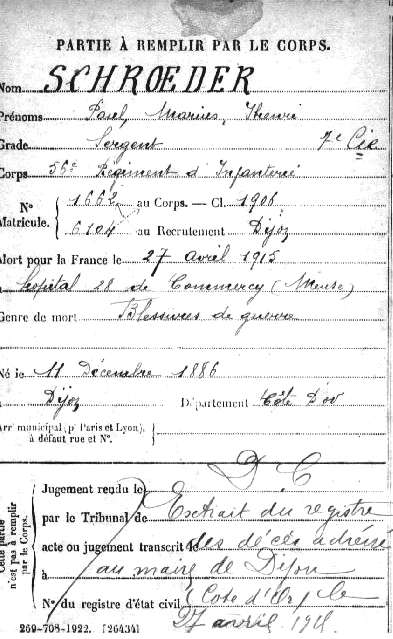 PARTIE À REMPLIR PAR LE CORPS.
Nom SCHROEDER
Prénoms Paul, Marius, Henri
Grade Sergent 7e Cie
Corps 56e Régiment d'Infanterie
N° Matricule. { 1662 au Corps. — Cl. 1906
6104 au Recrutement Dijon
Mort pour la France le 27 avril 1915
à hôpital 28 de Commercy (Meuse)
Genre de mort Blessures de guerre
Né le 11 Décembre 1886
à Dijon Département Côte d'Or
Arr municipal (p' Paris et Lyon), à défaut rue et N°.
D. C
Cette partie n'est pas à remplir par le Corps.
Jugement rendu le
par le Tribunal de Extrait du registre
acte ou jugement transcrit le des décès adressé
à au maire de Dijon
N° du registre d'état civil (Cote d'Or) le
27 avril
269-708-1922. [26434]